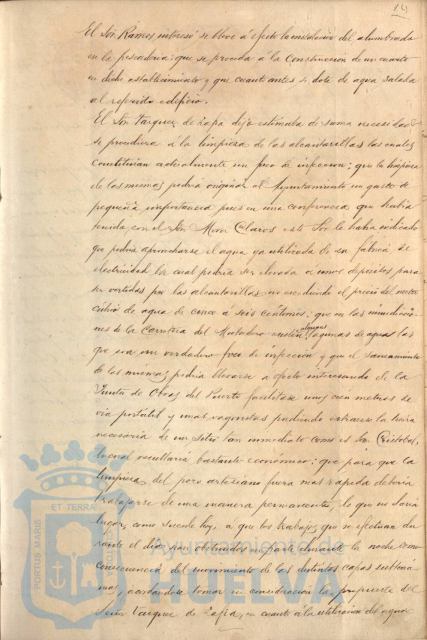 14
El Sor. Ramos interesó se lleve á efecto la instalación del alumbrado
en la pescadería: que se proceda á la construcción de un cuarto
en dicho establecimiento y que cuanto antes se dote de agua salada
al referido edificio.
El Sor. Vazquez de Zafra dijo estimaba de suma necesidad
se procediera á la limpieza de las alcantarillas las cuales
constituian actualmente un foco de infeccion: que la limpieza
de las mismas podria originar al Ayuntamiento un gasto de
pequeña importancia pues en una conferencia que habia
tenido con el Sor. Mora Claros este Sor. le habia indicado
que podria aprovecharse el agua ya utilizada de su fabrica de
electricidad la cual podria ser llevada á unos depositos para
ser vertidas por las alcantarillas no excediendo el precio del metro
cúbico de agua de cinco á seis centimos: que en las inmediacio-
nes de la Carretera del Matadero existen algunas lagunas de aguas las
que eran un verdadero foco de infección y que el saneamiento
de las mismas podria llevarse á efecto interesando de la
Junta de Obras del Puerto facilitase unos cien metros de
via portatil y unas vagonetas pudiendo extraerse la tierra
necesaria de un sitio tan inmediato como es San Cristobal,
lo cual resultaria bastante económico: que para que la
limpieza del pozo artesiano fuera mas rápida deberia
trabajarse de una manera permanente, lo que no daria
lugar, como sucede hoy, a que los trabajos que se efectuan du-
rante el dia sean obstruidos en parte durante la noche como
consecuencia del movimiento de las distintas capas subterra-
neas, acordandose tomar en consideración la propuesta del
Señor Vazquez de Zafra, en cuanto á la utilización del agua
PORTUS MARIS ET TERRAE CUSTODIA
Ayuntamiento de
HUELVA